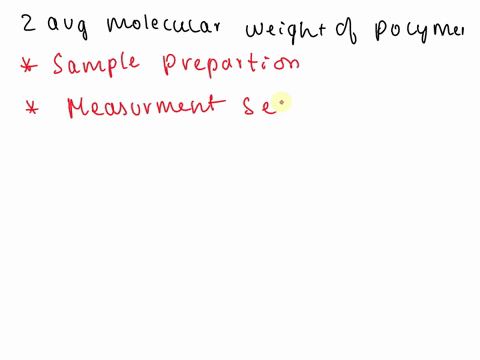 2 avg molecular weight of polymer
* Sample prepartion
* Measurment Se